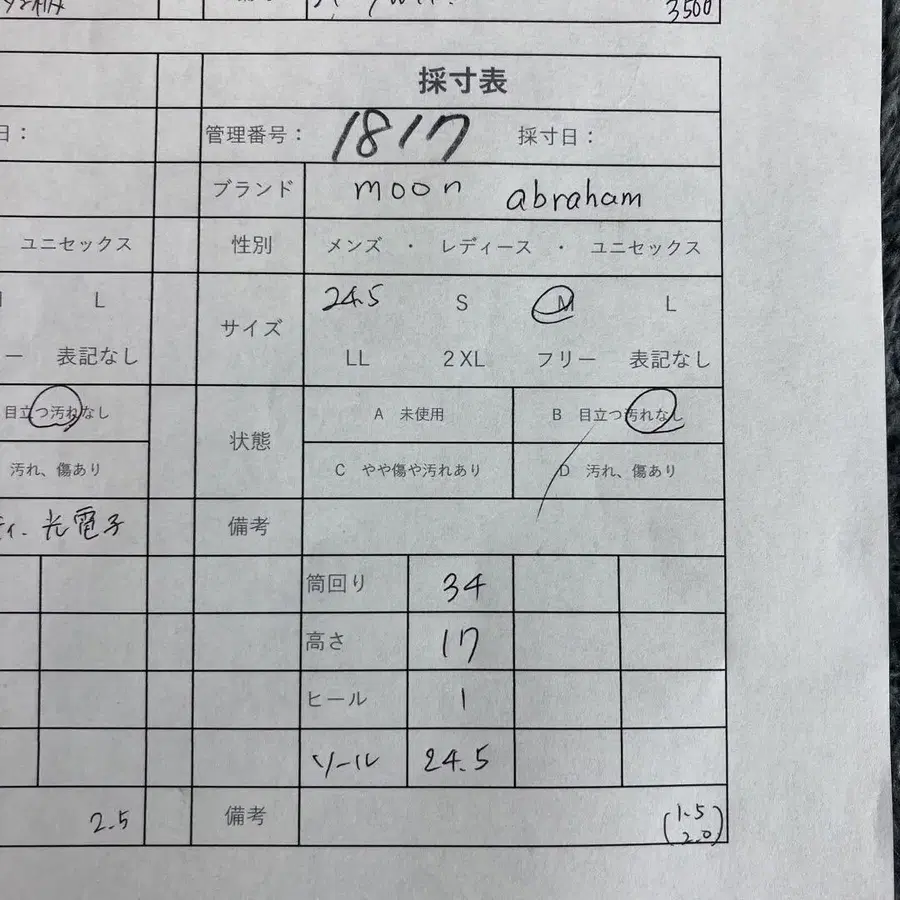 3500
採寸表
日：
管理番号： 1817 採寸日：
ブランド moon abraham
ユニセックス
性別 メンズ ・ レディース ・ ユニセックス
L
サイズ 24.5 S M L
ー 表記なし
LL 2XL フリー 表記なし
目立つ汚れなし
状態 A 未使用 B 目立つ汚れなし
汚れ、傷あり
C やや傷や汚れあり D 汚れ、傷あり
光電子
備考
筒回り 34
高さ 17
ヒール 1
ソール 24.5
2.5
備考 (1.5
2.0)